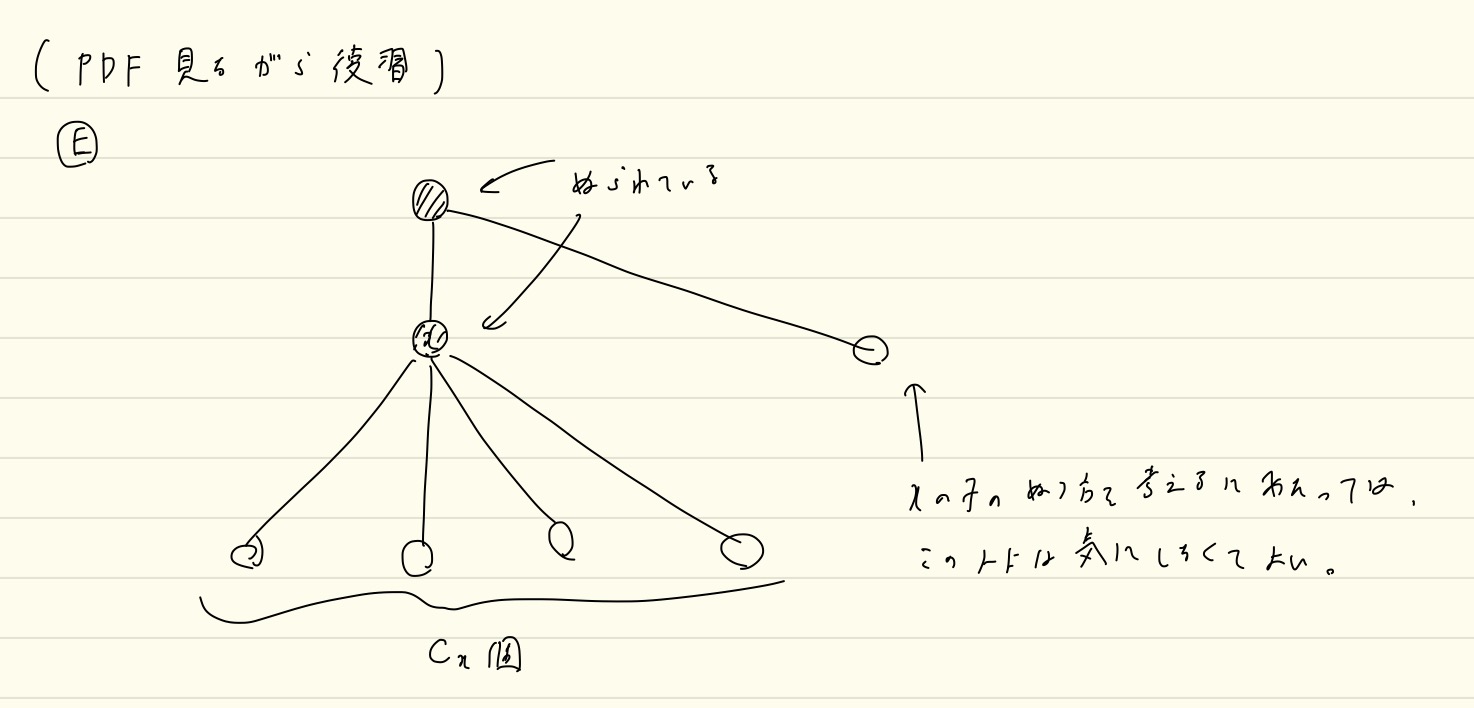 (PDF 見ながら復習)
E
ぬられている
x
xの子のぬり方を考えるにあたっては、
このノードは気にしなくてよい。
Cx個